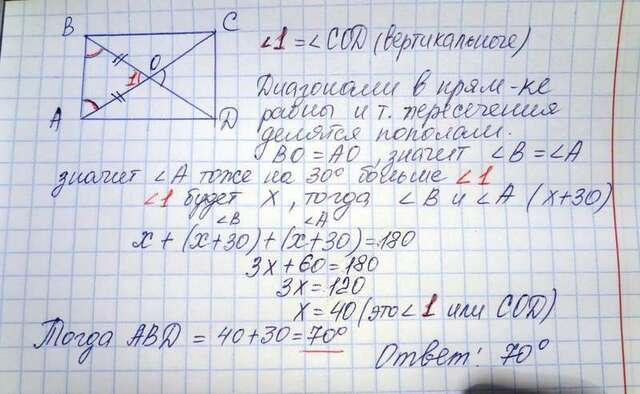 B
C
O
1
A
D
∠1 = ∠COD (вертикальные)
Диагонали в прям-ке
равны и т. пересечения
делятся пополам.
BO = AO, значит ∠B = ∠A
значит ∠A тоже на 30° больше ∠1
∠1 будет x, тогда ∠B и ∠A (x+30)
∠B ∠A
x + (x+30) + (x+30) = 180
3x + 60 = 180
3x = 120
x = 40 (это ∠1 или COD)
Тогда ABD = 40+30 = 70°
Ответ: 70°